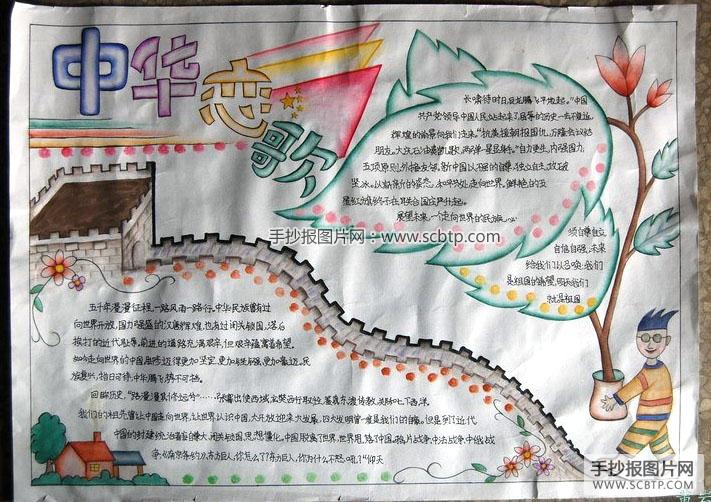 中华恋歌
长啸待时日,巨龙腾飞平地起。"中国
共产党领导中国人民站起来了,屈辱的历史一去不复返,
辉煌的前景向我们走来。"抗美援朝报国仇,万隆会议结
朋友。大庆石油奏凯歌,两弹一星显身手。"自力更生,内强国力;
五项原则,外结友邻。新中国以不屈的自尊、独立自主,攻破
坚冰。以崭新的姿态,和平外交走向世界。鲜艳的五
星红旗终于在联合国庄严升起。
展望未来,走向世界的民族
须自尊自立,
自信自强。未来
给我们以召唤:我们
是祖国的希望,明天我们
就是祖国
手抄报图片网:www.scbtp.com
五千年漫漫征程,一路风雨一路行。中华民族曾有过
向世界开放,国力强盛的汉唐辉煌,也有过闭关锁国,落后
挨打的近代耻辱,前进的道路充满艰辛,但艰辛蕴寓着希望。
如今走向世界的中国,自修迈得更加坚定,更加坚强,更加豪迈。民
族复兴,指日可待,中华腾飞势不可挡。
回眸历史,"路漫漫其修远兮"……张骞出使西域,玄奘西行取经,鉴真东渡传教,郑和七下西洋,
我们的祖先曾让中国走向世界,让世界认识中国,大开放迎来大发展,四大发明曾一度是我们的自豪。但是到了近代
中国的封建统治者盲目自尊大,闭关锁国,思想僵化。中国脱离了世界,世界甩掉了中国。鸦片战争,中法战争,中俄战
争,《南京条约》,东方巨人,你怎么了?东方巨人,你为什么不怒吼?"仰天
手抄报图片网
WWW.SCBTP.COM